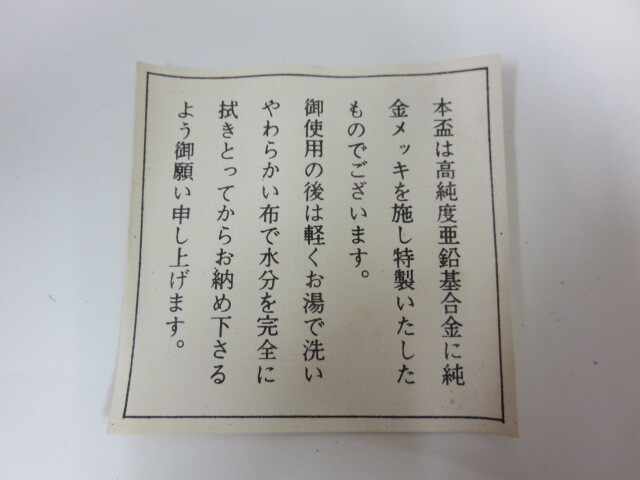 本盃は高純度亜鉛基合金に純
金メッキを施し特製いたした
ものでございます。
御使用の後は軽くお湯で洗い
やわらかい布で水分を完全に
拭きとってからお納め下さる
よう御願い申し上げます。